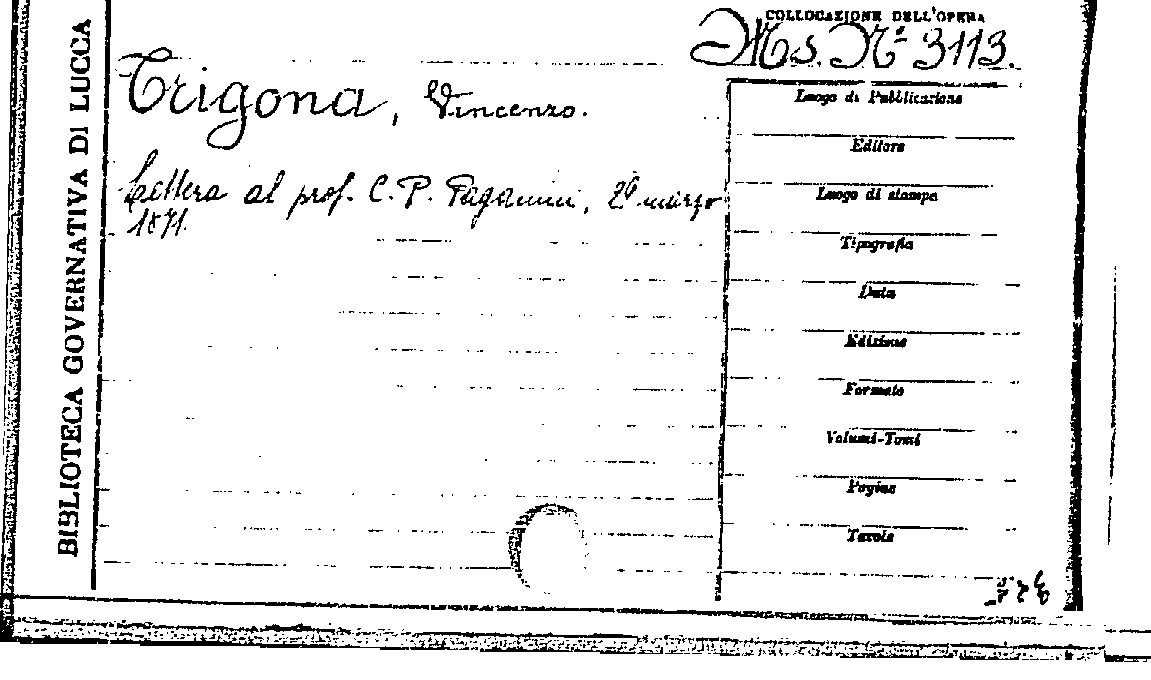 BIBLIOTECA GOVERNATIVA DI LUCCA
COLLOCAZIONE DELL'OPERA
Ms. Nº 3113.
Trigona, Vincenzo.
Lettera al prof. C. P. Paganini, marzo
1871.
Luogo di Pubblicazione
Editore
Luogo di stampa
Tipografia
Data
Edizione
Formato
Volumi-Tomi
Pagine
Tavole